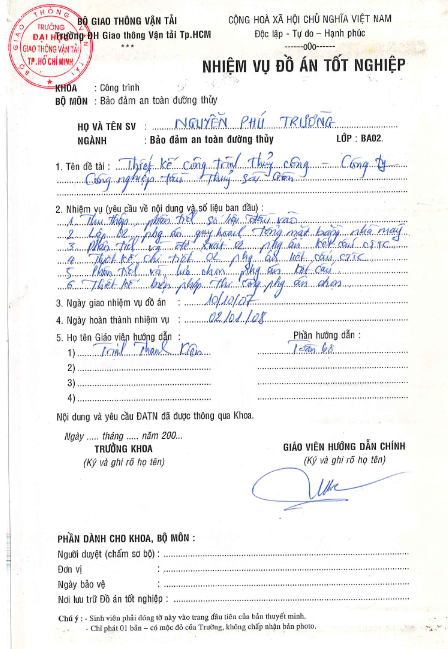 BỘ GIAO THÔNG VẬN TẢI
Trường ĐH Giao thông Vận tải Tp.HCM
***
CỘNG HOÀ XÃ HỘI CHỦ NGHĨA VIỆT NAM
Độc lập - Tự do - Hạnh phúc
------o0o------
BỘ GIAO THÔNG VẬN TẢI
TRƯỜNG
ĐẠI HỌC
GIAO THÔNG VẬN TẢI
TP.HỒ CHÍ MINH
NHIỆM VỤ ĐỒ ÁN TỐT NGHIỆP
KHOA : Công trình
BỘ MÔN : Bảo đảm an toàn đường thủy
HỌ VÀ TÊN SV : NGUYỄN PHÚ TRƯỜNG
NGÀNH : Bảo đảm an toàn đường thủy LỚP : BA02
1. Tên đề tài : Thiết kế công trình Thủy công - Công ty
Công nghiệp tàu Thủy Sài Gòn
2. Nhiệm vụ (yêu cầu về nội dung và số liệu ban đầu) :
1. Thu thập, phân tích số liệu đầu vào
2. Lập phg án quy hoạch Tổng mặt bằng nhà máy
3. Phân tích và đề xuất phg án kết cấu
4. Thiết kế chi tiết phg án kết cấu
5. Phân tích và lựa chọn phg án kết cấu
6. Thiết kế biện pháp Thi công phg án chọn
3. Ngày giao nhiệm vụ đồ án : 10/10/07
4. Ngày hoàn thành nhiệm vụ : 02/01/08
5. Họ tên Giáo viên hướng dẫn : Phần hướng dẫn :
1) Thanh Toàn bộ
2)
3)
4)
Nội dung và yêu cầu ĐATN đã được thông qua Khoa.
Ngày ..... tháng ..... năm 200...
TRƯỞNG KHOA
(Ký và ghi rõ họ tên)
GIÁO VIÊN HƯỚNG DẪN CHÍNH
(Ký và ghi rõ họ tên)
PHẦN DÀNH CHO KHOA, BỘ MÔN :
Người duyệt (chấm sơ bộ) :
Đơn vị :
Ngày bảo vệ :
Nơi lưu trữ Đồ án tốt nghiệp :
Chú ý : - Sinh viên phải đóng tờ này vào trang đầu tiên của bản thuyết minh.
- Chỉ phát 01 bản – có mộc đỏ của Trường, không chấp nhận bản photo.